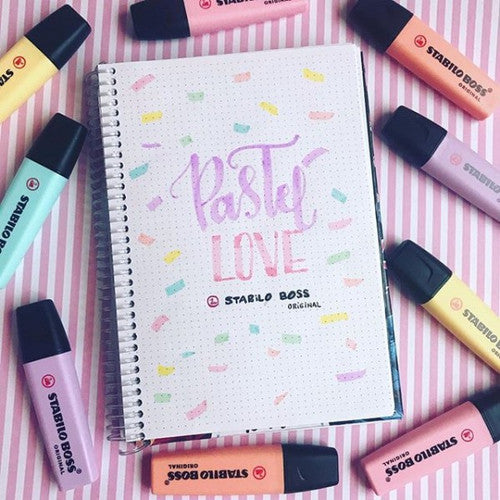 Pastel
LOVE
STABILO BOSS
ORIGINAL
STABILO BOSS
ORIGINAL
STABILO BOSS
ORIGINAL
STABILO BOSS
ORIGINAL
STABILO BOSS
ORIGINAL
STABILO BOSS
ORIGINAL
STABILO BOSS
ORIGINAL
STABILO BOSS
ORIGINAL
STABILO BOSS
ORIGINAL
STABILO BOSS
ORIGINAL